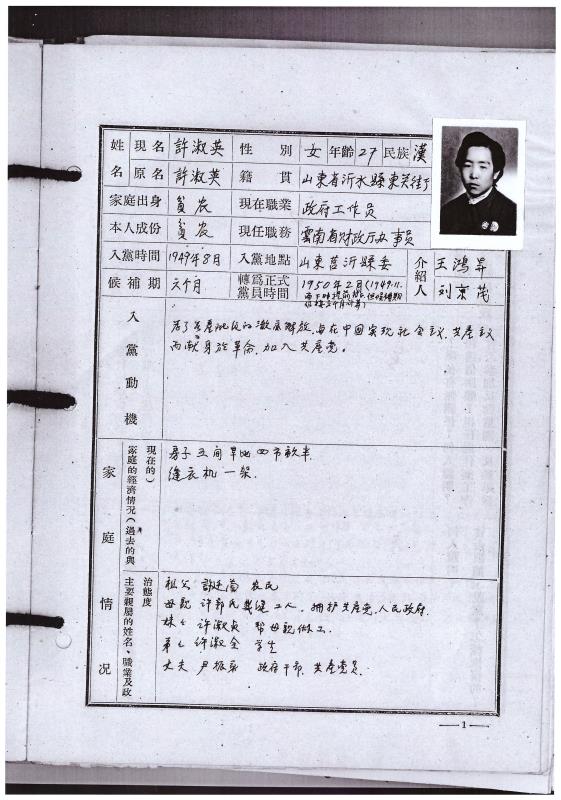 姓 現名 許淑英 性別 女 年齡 27 民族 漢
名 原名 許淑英 籍貫 山東省沂水縣東关
家庭出身 貧农 現在職業 政府工作员
本人成份 貧农 現任職務 雲南省财政厅办事員
入黨時間 1949年8月 入黨地點 山東莒沂縣委 介紹人 王鴻昇
候補期 六个月 轉爲正式黨員時間 1950年2月(1949.11. 刘京茂
入黨動機
为了无產阶级的澈底解放,与在中国实现社会主义,共產主义
而献身於革命,加入共產党。
家庭情况
家庭的經濟情况(過去的與現在的)
房子五间旱地四市畝半.
缝衣机一架.
主要親屬的姓名、職業及政治態度
祖父 农民
母親 许郭氏 缝工人.拥护共產党.人民政府.
妹々 许淑贞 帮母親做工.
弟々 许淑全 学生
丈夫 尹振 政府干部.共產党员.
1